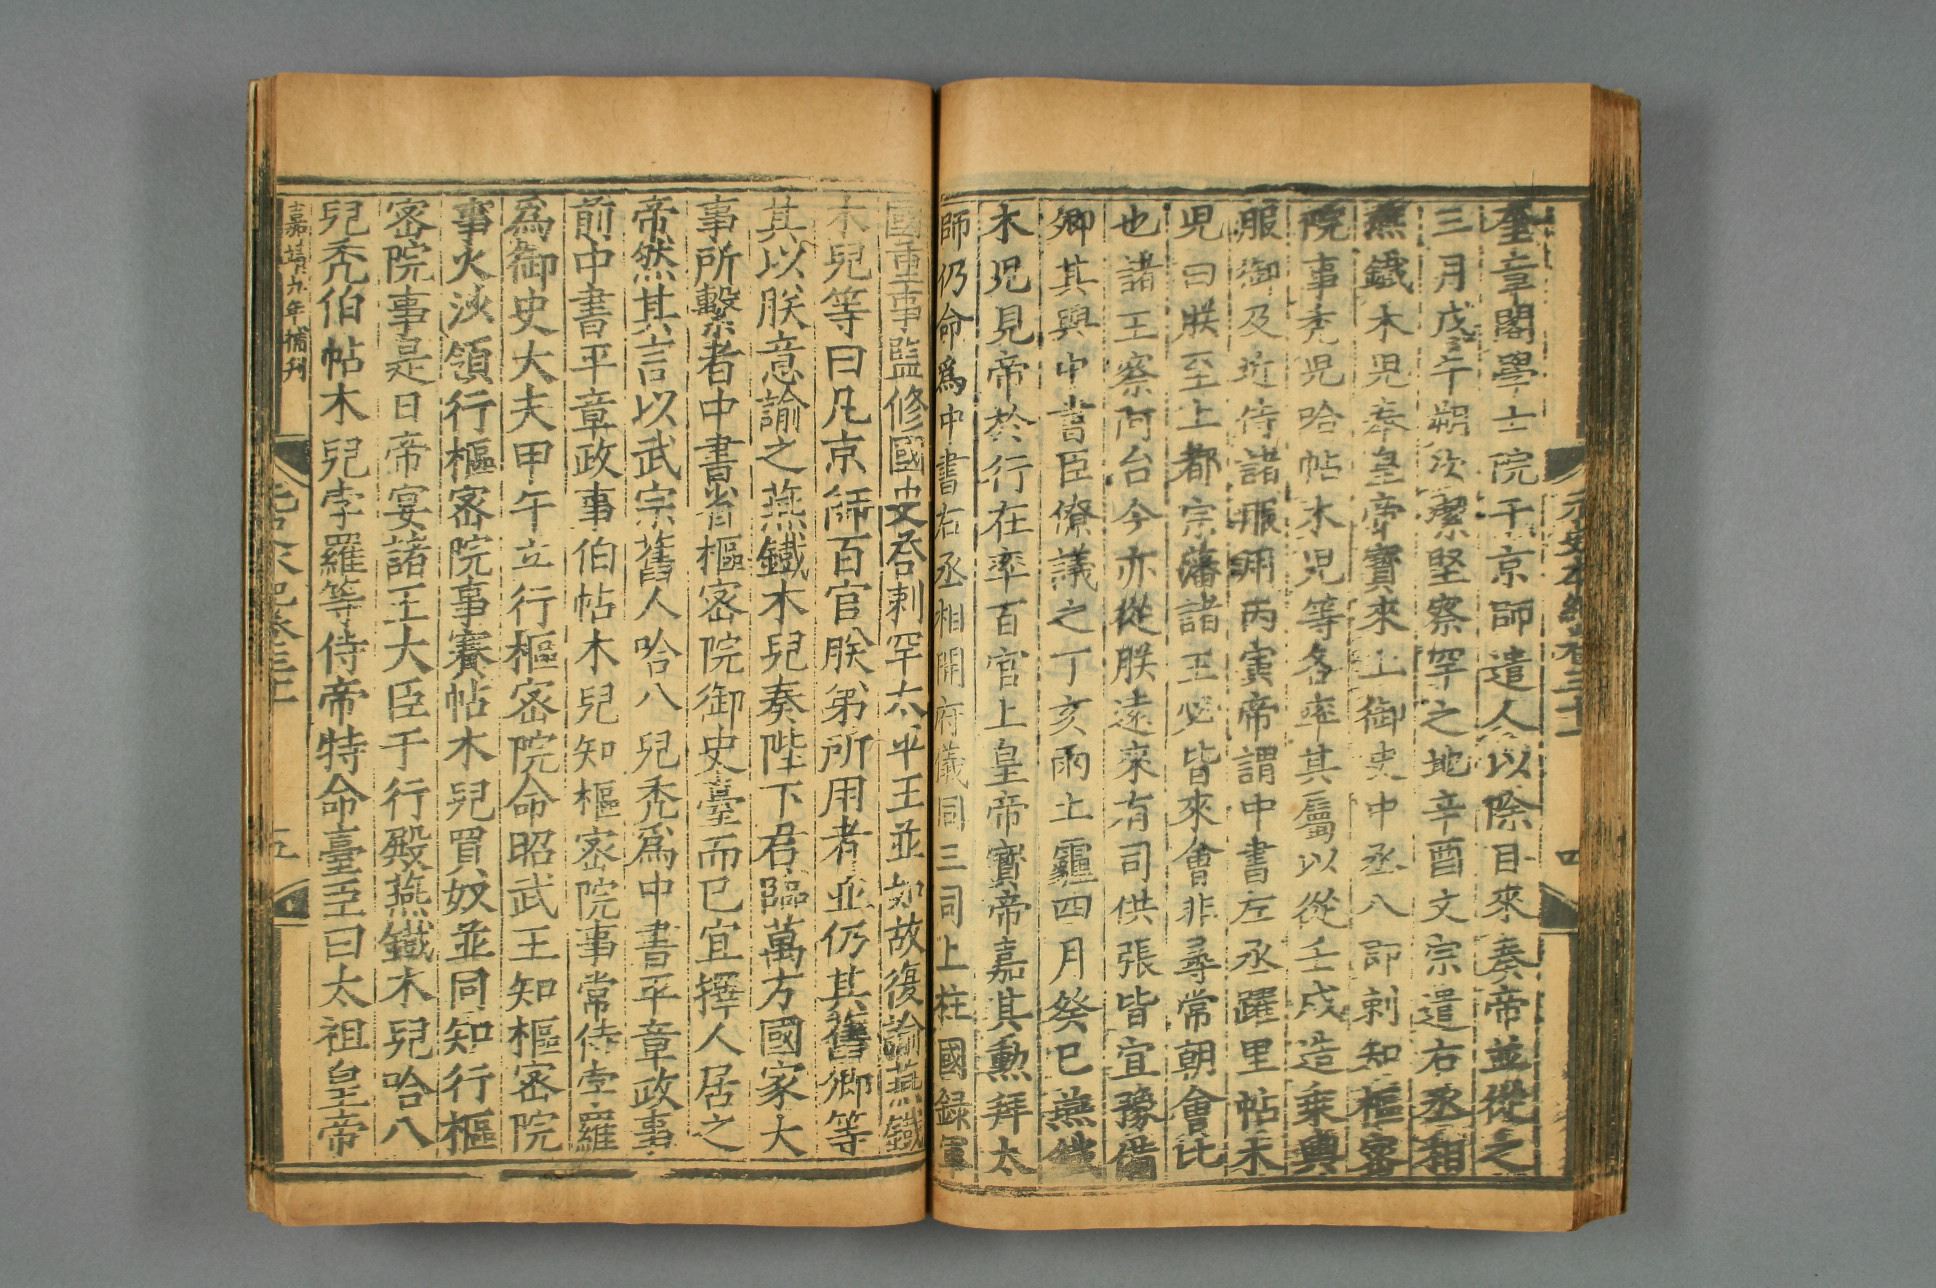 奎章閣學士院于京師遣人以除目來奏帝並從之
三月戊午朔次潔堅察罕之地辛酉文宗遣右丞相
燕鐵木兒奉皇帝寶來上御史中丞八即剌知樞密
院事禿兒哈帖木兒等各率其屬以從壬戌造乘輿
服御及近侍諸服用丙寅帝謂中書左丞躍里帖木
兒曰朕至上都宗藩諸王必皆來會非尋常朝會比
也諸王察阿台今亦從朕遠來有司供張皆宜豫備
卿其與中書臣僚議之丁亥雨土霾四月癸巳燕鐵
木兒見帝於行在率百官上皇帝寶帝嘉其勳拜太
師仍命爲中書右丞相開府儀同三司上柱國録軍
元史本紀卷三十一
四
國重事監修國史荅剌罕太平王並如故復諭燕鐵
木兒等曰凡京師百官朕弟所用者並仍其舊卿等
其以朕意諭之燕鐵木兒奏陛下君臨萬方國家大
事所繫者中書省樞密院御史臺而已宜擇人居之
帝然其言以武宗舊人哈八兒禿爲中書平章政事
前中書平章政事伯帖木兒知樞密院事常侍孛羅
爲御史大夫甲午立行樞密院命昭武王知樞密院
事火沙領行樞密院事賽帖木兒買奴並同知行樞
密院事是日帝宴諸王大臣于行殿燕鐵木兒哈八
兒禿伯帖木兒孛羅等侍帝特命臺臣曰太祖皇帝
嘉靖九年補刊
元史本紀卷三十一
五